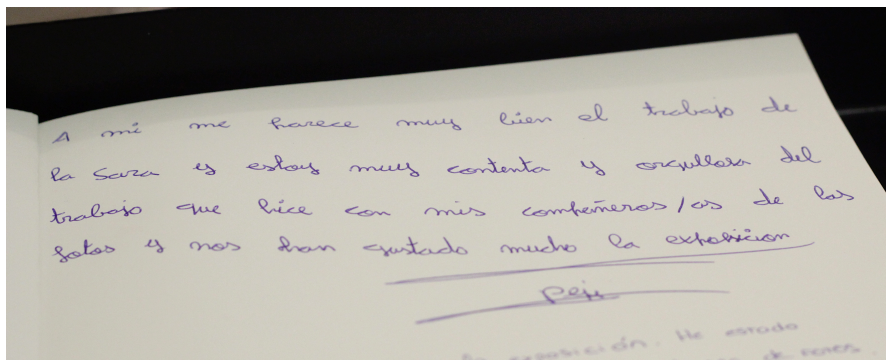 A mi me parece muy bien el trabajo de
la Sara y estoy muy contenta y orgullosa del
trabajo que hice con mis compañeros/as de las
fotos y nos han gustado mucho la exposicion
Peji
exposición. He estado
de